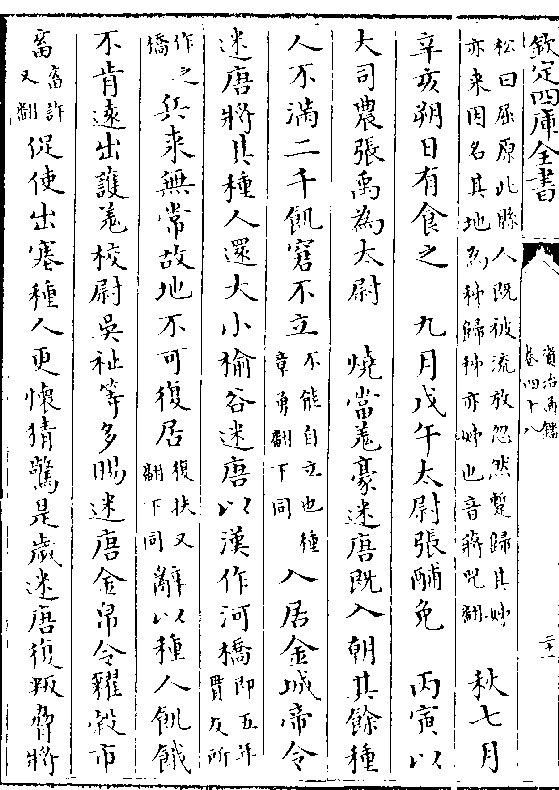 欽定四庫全書
資治通鑑
卷四十八
二十一
松曰屈原此縣人既被流放忽然蹔歸其姊
亦來因名其地為秭歸秭亦姊也音蔣兕翻
秋七月
辛亥朔日有食之 九月戊午太尉張酺免 丙寅以
大司農張禹為太尉 燒當羌豪迷唐既入朝其餘種
人不滿二千飢窘不立
不能自立也種
章勇翻下同
入居金城帝令
迷唐將其種人還大小榆谷迷唐以漢作河橋
即五年
貫友所
作之
橋
兵來無常故地不可復居
復扶又
翻下同
辭以種人飢餓
不肯遠出護羌校尉吳祉等多賜迷唐金帛令糴穀市
畜
畜許
又翻
促使出塞種人更懷猜驚是歲迷唐復叛脅將